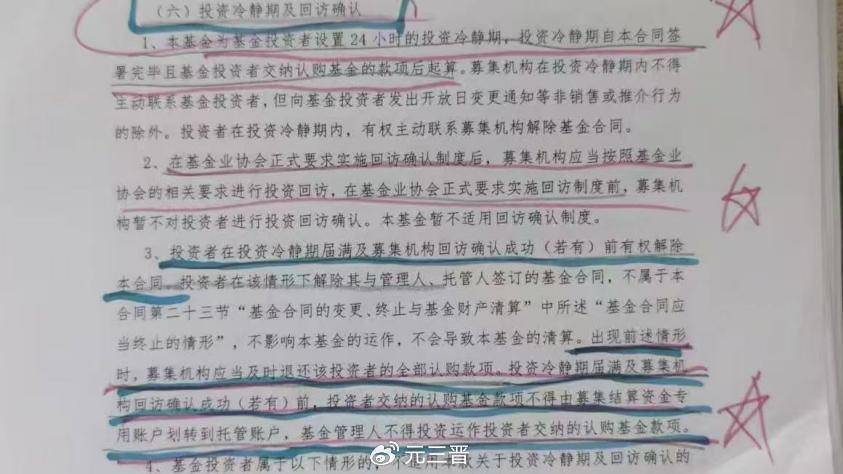 （六）投资冷静期及回访确认
1、本基金为基金投资者设置 24 小时的投资冷静期，投资冷静期自本合同签
署完毕且基金投资者交纳认购基金的款项后起算。募集机构在投资冷静期内不得
主动联系基金投资者，但向基金投资者发出开放日变更通知等非销售或推介行为
的除外。投资者在投资冷静期内，有权主动联系募集机构解除基金合同。
2、在基金业协会正式要求实施回访确认制度后，募集机构应当按照基金业
协会的相关要求进行投资回访，在基金业协会正式要求实施回访制度前，募集机
构暂不对投资者进行投资回访确认。本基金暂不适用回访确认制度。
3、投资者在投资冷静期届满及募集机构回访确认成功（若有）前有权解除
本合同。投资者在该情形下解除其与管理人、托管人签订的基金合同，不属于本
合同第二十三节“基金合同的变更、终止与基金财产清算”中所述“基金合同应
当终止的情形”，不影响本基金的运作，不会导致本基金的清算。出现前述情形
时，募集机构应当及时退还该投资者的全部认购款项。投资冷静期届满及募集机
构回访确认成功（若有）前，投资者交纳的认购基金款项不得由募集结算资金专
用账户划转到托管账户，基金管理人不得投资运作投资者交纳的认购基金款项。
4、基金投资者属于以下情形的，不适用关于投资冷静期及回访确认的
@元三晋